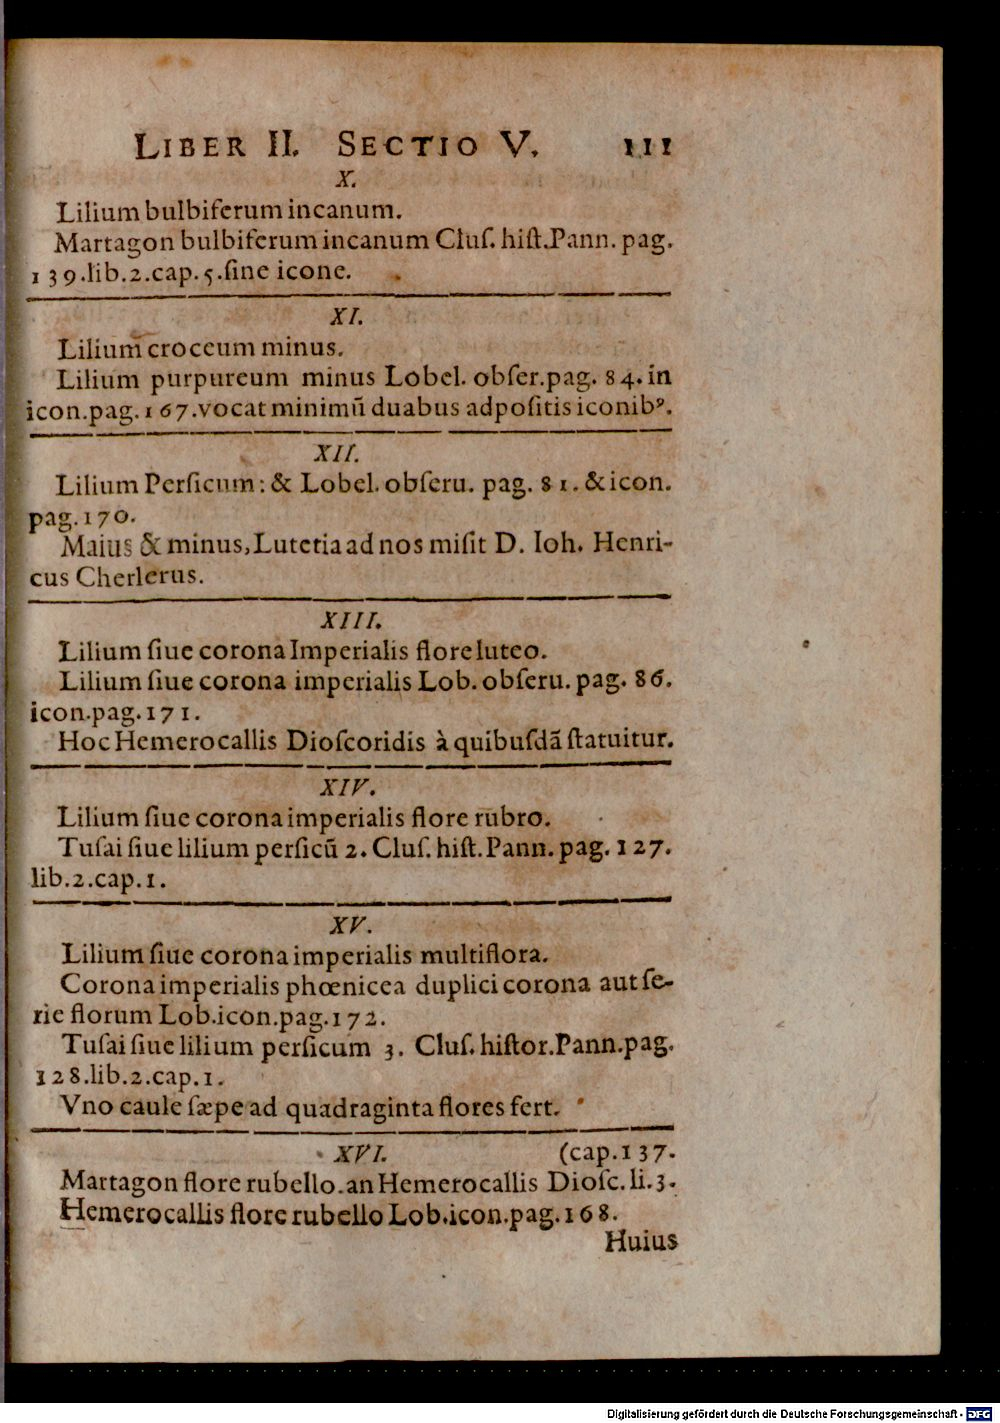 LIBER II. SECTIO V. 111
X.
Lilium bulbiferum incanum.
Martagon bulbiferum incanum Cluſ. hiſt. Pann. pag.
139. lib. 2. cap. 5. ſine icone.
XI.
Lilium croceum minus.
Lilium purpureum minus Lobel. obſer. pag. 84. in
icon. pag. 167. vocat minimũ duabus adpoſitis iconibꝰ.
XII.
Lilium Perſicum: & Lobel. obſeru. pag. 81. & icon.
pag. 170.
Maius & minus, Lutetia ad nos miſit D. Ioh. Henri-
cus Cherlerus.
XIII.
Lilium ſiue corona Imperialis flore luteo.
Lilium ſiue corona imperialis Lob. obſeru. pag. 86.
icon. pag. 171.
Hoc Hemerocallis Dioſcoridis à quibuſdã ſtatuitur.
XIV.
Lilium ſiue corona imperialis flore rubro.
Tuſai ſiue lilium perſicũ 2. Cluſ. hiſt. Pann. pag. 127.
lib. 2. cap. 1.
XV.
Lilium ſiue corona imperialis multiflora.
Corona imperialis phœnicea duplici corona aut ſe-
rie florum Lob. icon. pag. 172.
Tuſai ſiue lilium perſicum 3. Cluſ. hiſtor. Pann. pag.
128. lib. 2. cap. 1.
Vno caule ſæpe ad quadraginta flores fert.
XVI. (cap. 137.
Martagon flore rubello. an Hemerocallis Dioſc. li. 3.
Hemerocallis flore rubello Lob. icon. pag. 168.
Huius
Digitalisierung gefördert durch die Deutsche Forschungsgemeinschaft - DFG